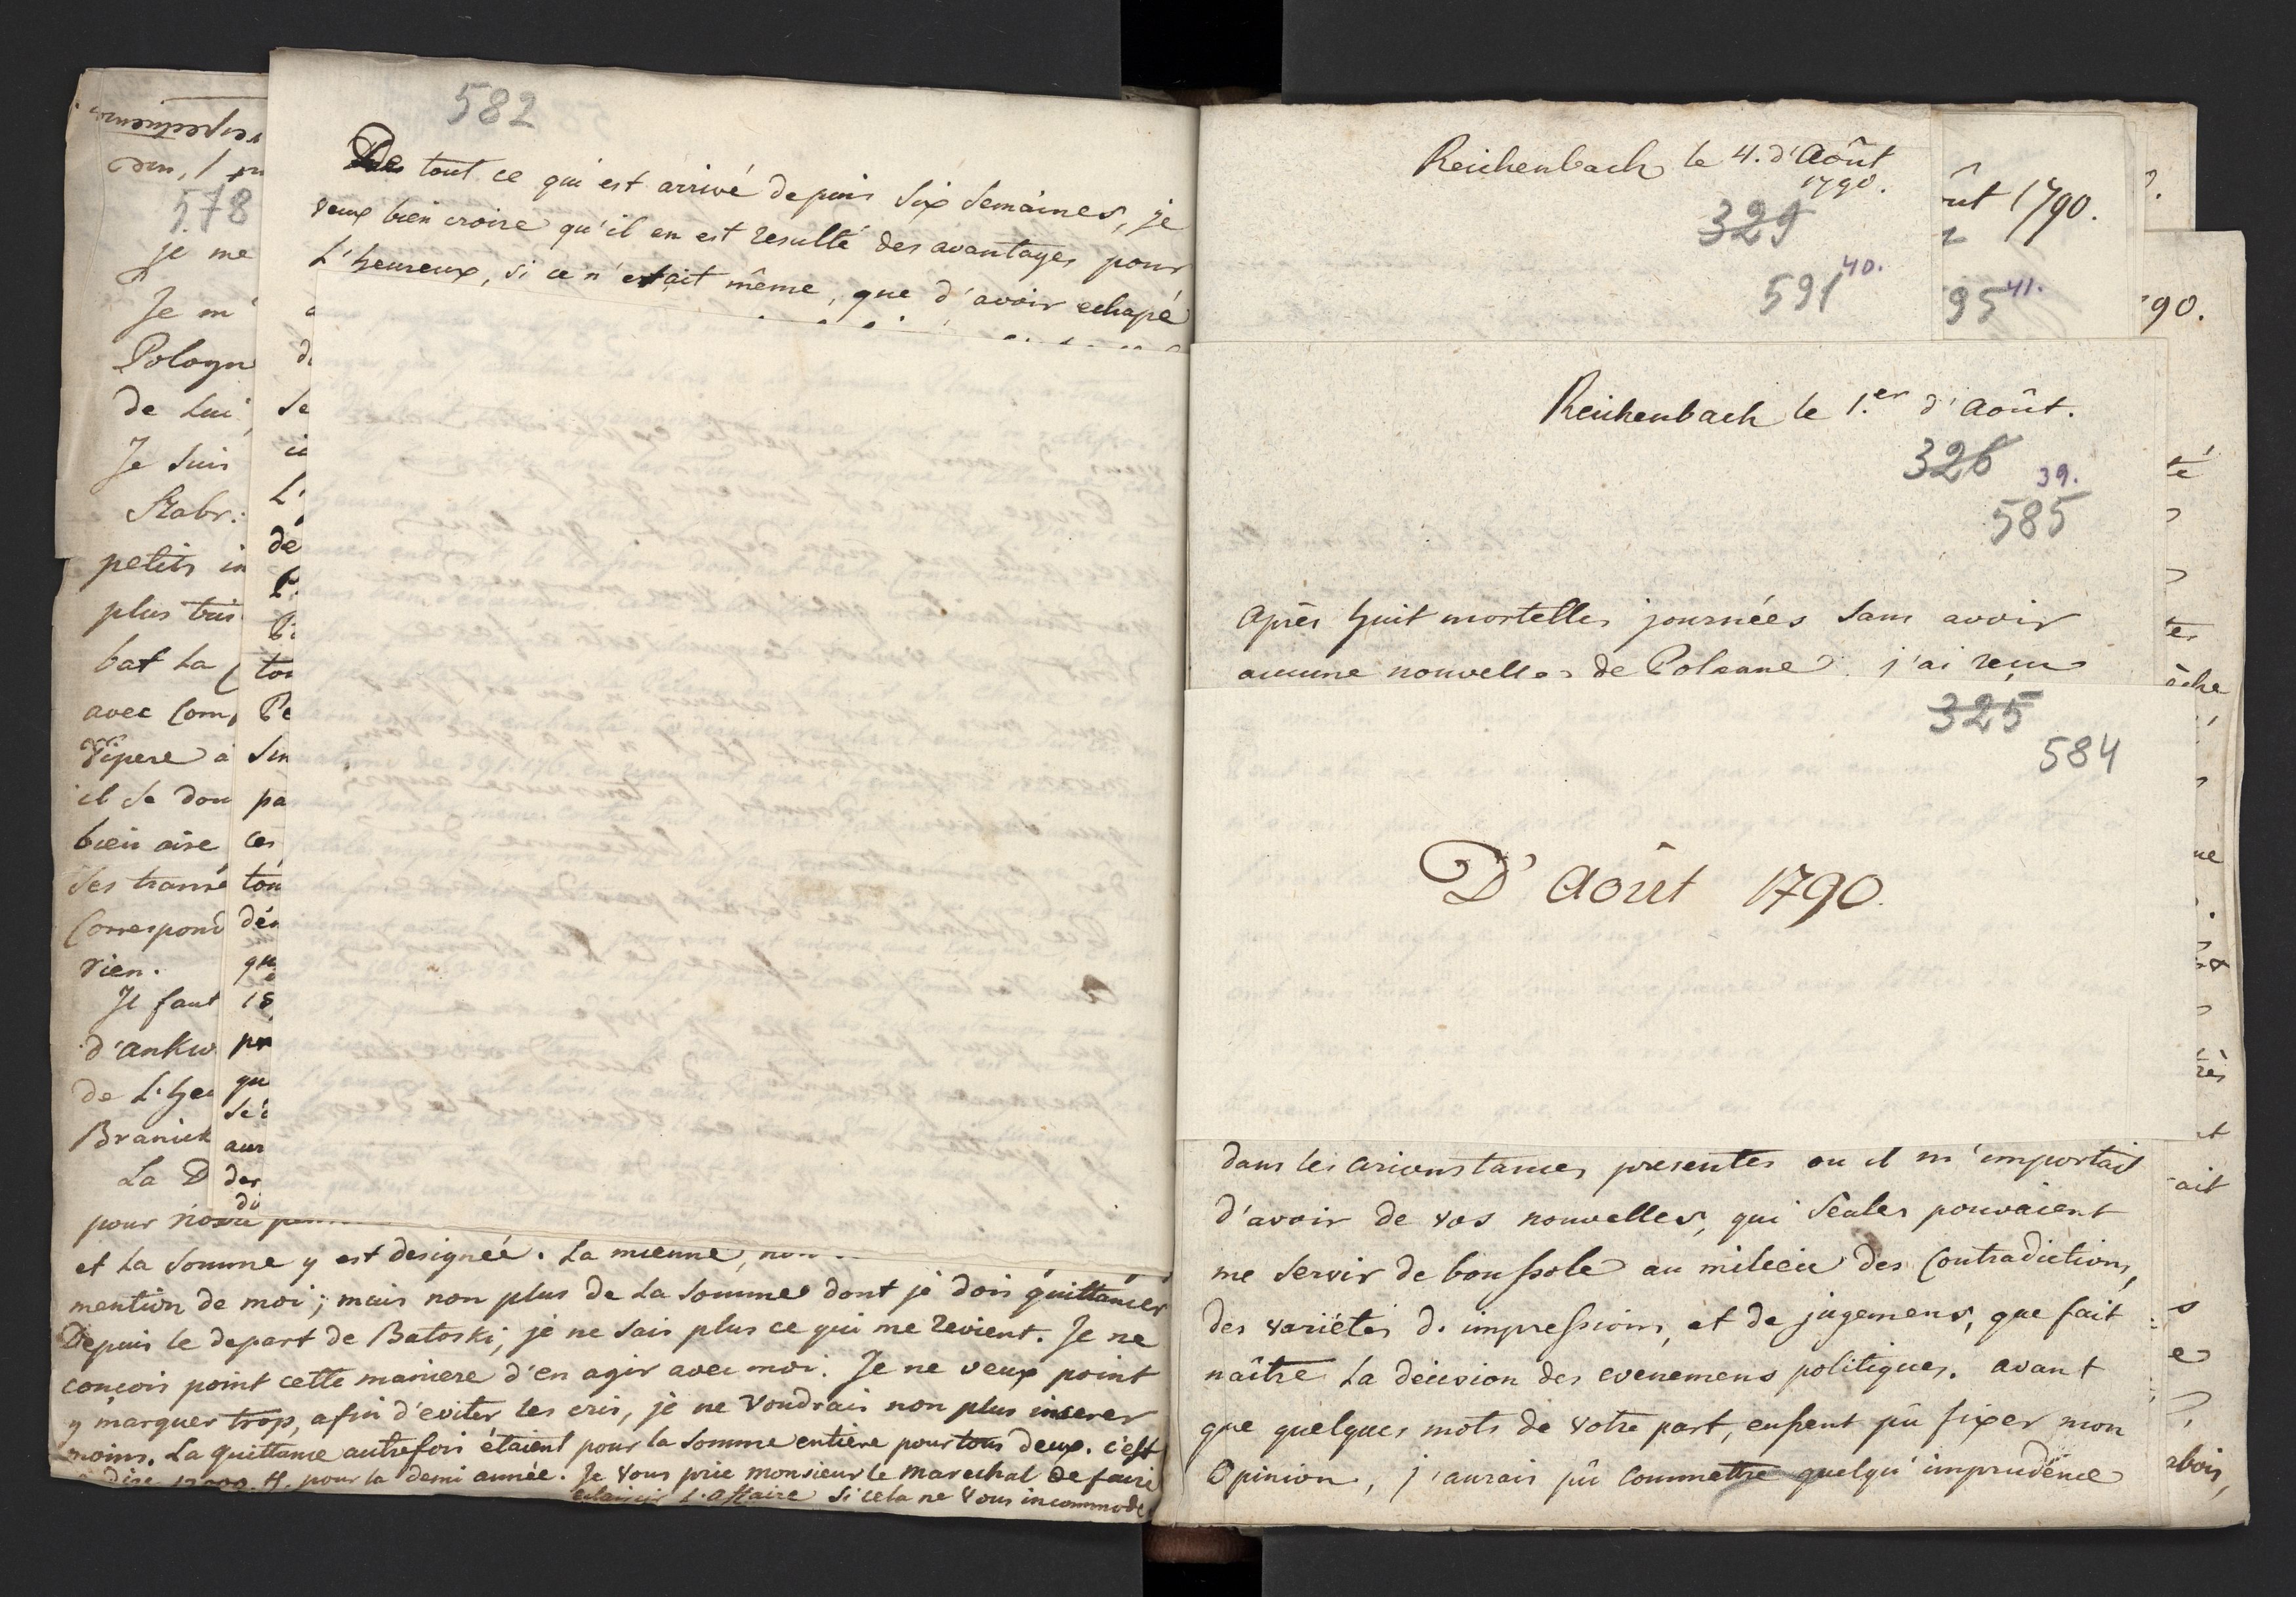 578
je me
Je m'
Pologn
de Lui
Je suis
Stabr:
petits in
plus tris
bat La
avec Com
Vipere a
il se dou
bien aise
Ses tramé
Correspond
rien.
Il faut
d'ankw
de L'heu
Branick
La D
pour nostre
et La somme y est designée. La mienne, non
mention de moi; mais non plus de La Somme dont je dois quittancer
Depuis le depart de Batoski, je ne sais plus ce qui me revient. Je ne
concois point cette maniere d'en agir avec moi. Je ne veux point
y marquer trop, afin d'eviter les cris, je ne voudrais non plus inserer
moins. La quittance autrefois étaient pour la Somme entiere pour tous deux. c'est
pour la demi année. Je vous prie monsieur le marechal de faire
eclaircir L'affaire si cela ne vous incommode
582
De tout ce qui est arrivé depuis six semaines, je
veux bien croire qu'il en est resulté des avantages pour
L'heureux, si ce n'etait même, que d'avoir echapé
de
se
L'
dé
tou
Pe
sin
pa
ces
tou
dés
qu
18
pr
qu
aur
des
du
Reichenbach le 4. d'Août
1790.
329
40.
591
ût 1790.
41.
95
90.
Reichenbach le 1.er d'août.
326
39.
585
après huit mortelles journées sans avoir
aucune nouvelles de Pologne j'ai reçu
325
584
D'Août 1790.
dans les circonstances presentes ou il m'importait
d'avoir de vos nouvelles, qui seules pouvaient
me servir de boussole au milieu des Contradictions,
des varietés d'impressions, et de jugemens, que fait
naître La decision des evenemens politiques. avant
que quelques mots de votre part, eussent pû fixer mon
Opinion, j'aurais pû commettre quelqu'imprudence
té
ter
ue
ait